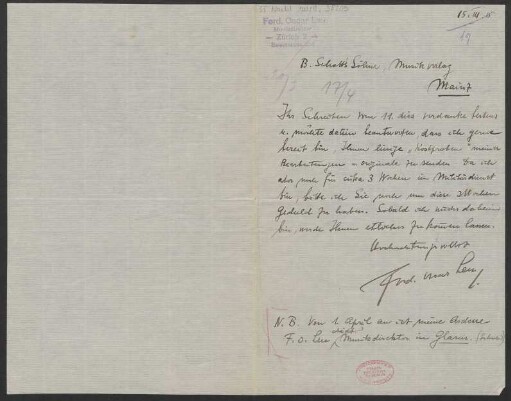 15. III.
Ferd. Oscar Leu
Zürich
B. Schott's Söhne, Musikverlag
Mainz
17/4
Ihr Schreiben vom 11. dies verdanke bestens
u. möchte dahin beantworten dass ich gerne
bereit bin, Ihnen einige "Kostproben" meiner
Bearbeitungen u. originale zu senden. Da ich
aber noch für cirka 3 Wochen in Militärdienst
bin, bitte ich Sie noch um diese 3 Wochen
Geduld zu haben. Sobald ich wieder daheim
bin, werde Ihnen etwelches zukommen lassen.
Hochachtungsvollst
Ferd. Leu
N.B. Von 1. April an ist meine Adresse
F. O. Leu, Musikdirektor in Glarus